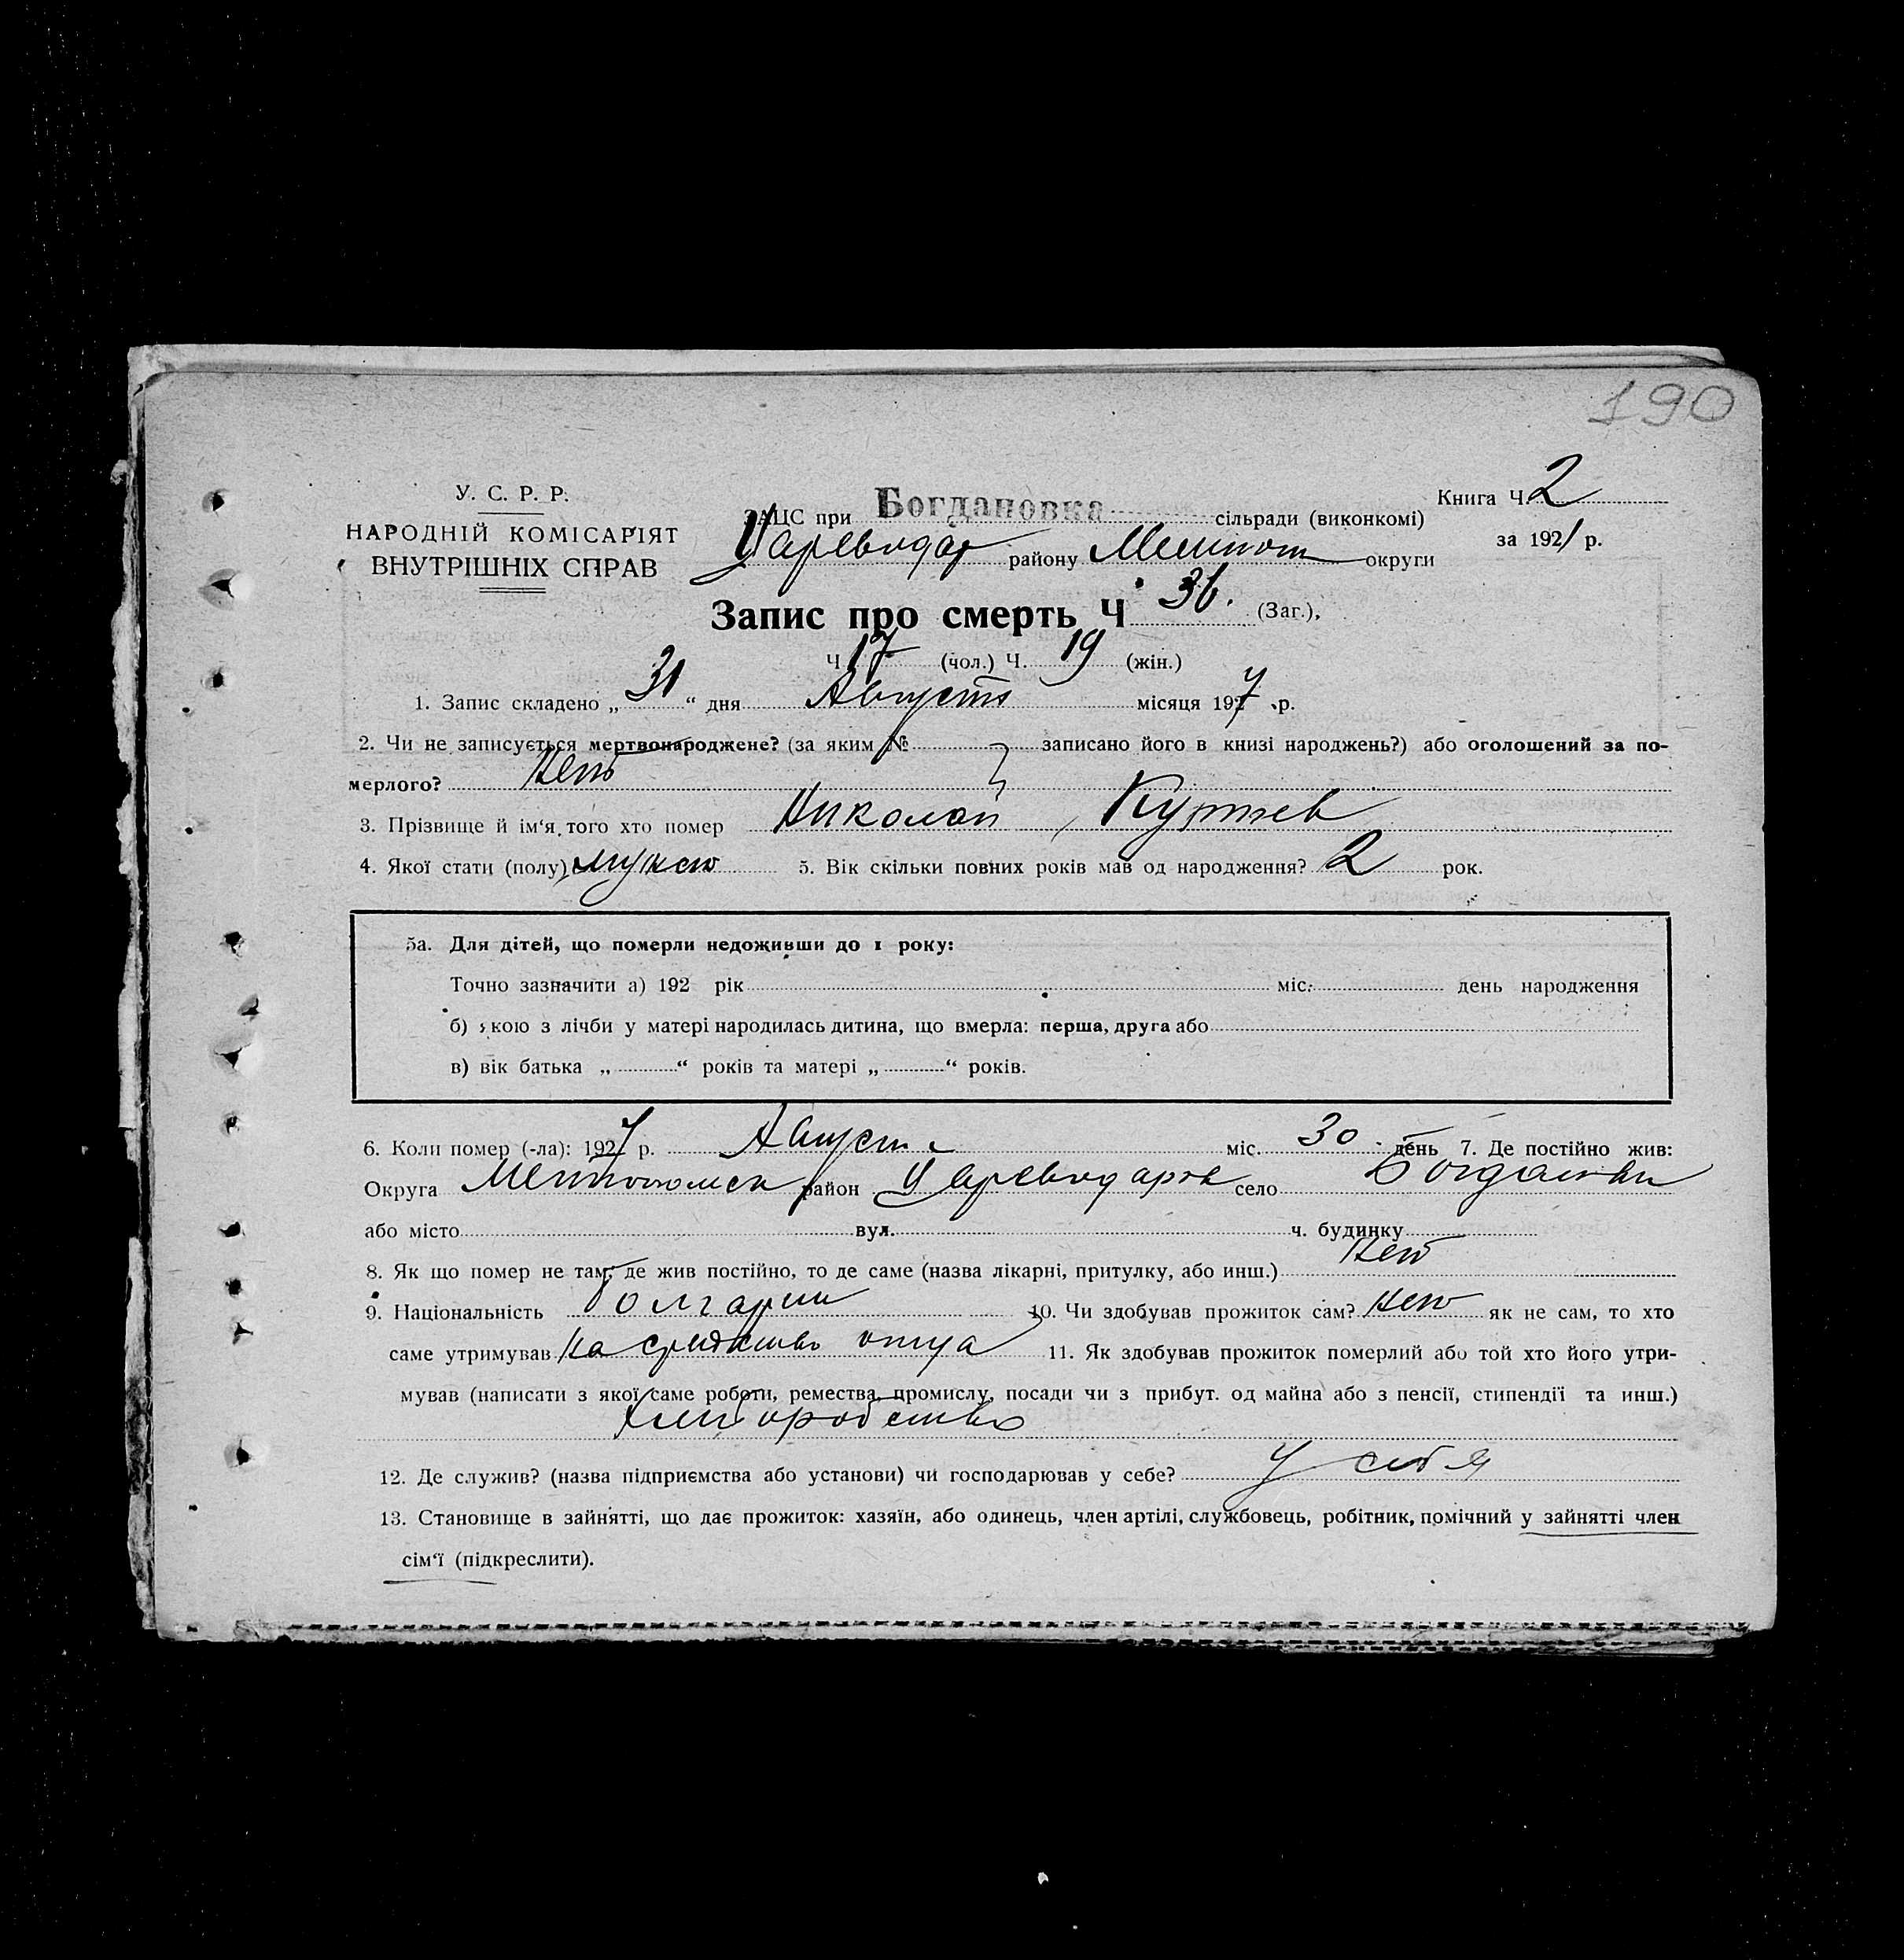 190
У. С. Р. Р.
НАРОДНІЙ КОМІСАРІЯТ
ВНУТРІШНІХ СПРАВ
ЗАЦС при Богдановка сільради (виконкомі)
Цареводар району Мелитоп округи
Книга Ч. 2
за 192 р.
Запис про смерть Ч 36. (Заг.),
Ч 17 (чол.) Ч. 19 (жін.)
1. Запис складено „ 31 “ дня Августа місяця 1927 р.
2. Чи не записується мертвонароджене? (за яким № записано його в книзі народжень?) або оголошений за по-
мерлого? нет
3. Прізвище й ім‘я того хто помер Николай Куртев
4. Якої стати (полу) 5. Вік скільки повних років мав од народження? 2 рок.
5а. Для дітей, що померли недоживши до 1 року:
Точно зазначити а) 192 рік міс. день народження
б) якою з лічби у матері народилась дитина, що вмерла: перша, друга або
в) вік батька „ “ років та матері „ “ років.
6. Коли помер (-ла): 1927 р. Август міс. 30 день 7. Де постійно жив:
Округа район село
або місто вул. ч. будинку
8. Як що помер не там, де жив постійно, то де саме (назва лікарні, притулку, або инш.) нет
9. Національність болгарин 10. Чи здобував прожиток сам? нет як не сам, то хто
саме утримував на отца 11. Як здобував прожиток померлий або той хто його утри-
мував (написати з якої саме роботи, ремества, промислу, посади чи з прибут. од майна або з пенсії, стипендії та инш.)
12. Де служив? (назва підприємства або установи) чи господарював у себе? у себя
13. Становище в зайнятті, що дає прожиток: хазяїн, або одинець, член артілі, службовець, робітник, помічний у зайнятті член
сім‘ї (підкреслити).